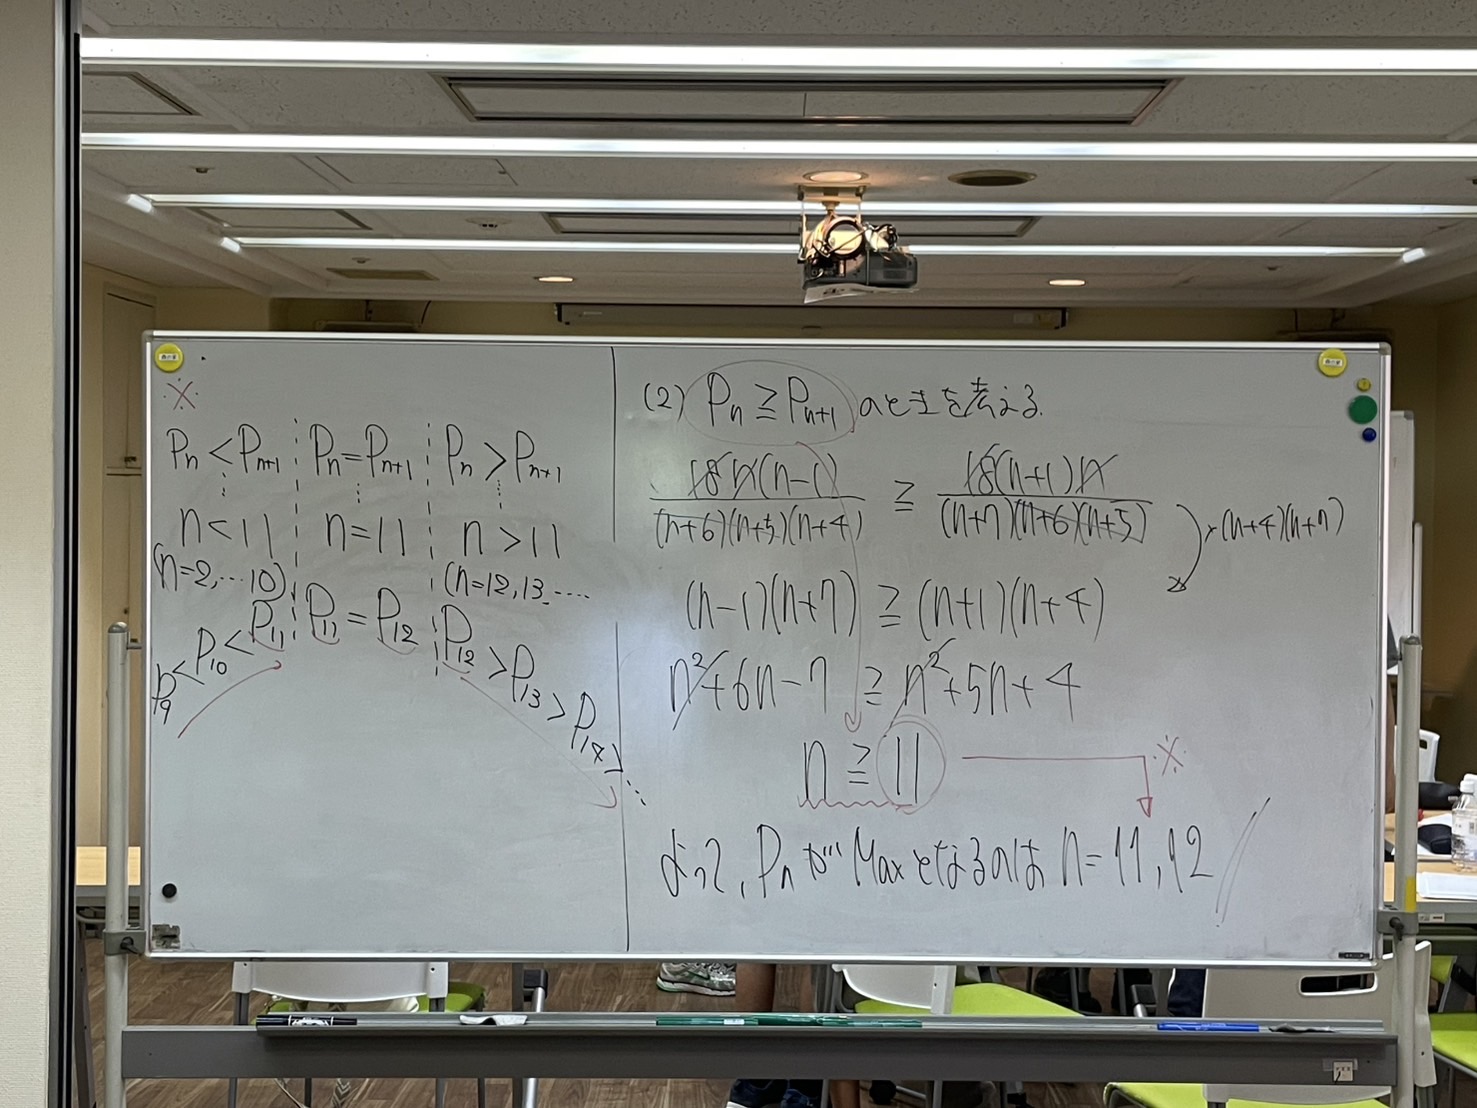 ※
Pn < Pn+1 Pn = Pn+1 Pn > Pn+1
n < 11 n = 11 n > 11
(n=2, … 10) (n=12, 13, ……
P9 < P10 < P11 P11 = P12 P12 > P13 > P14 > …
(2) Pn ≧ Pn+1 のときを考える.
18n(n-1)/(n+6)(n+5)(n+4) ≧ 18(n+1)n/(n+7)(n+6)(n+5)
×(n+4)(n+7)
(n-1)(n+7) ≧ (n+1)(n+4)
n²+6n-7 ≧ n²+5n+4
n ≧ 11 ※
よって, Pn が Max となるのは n=11, 12